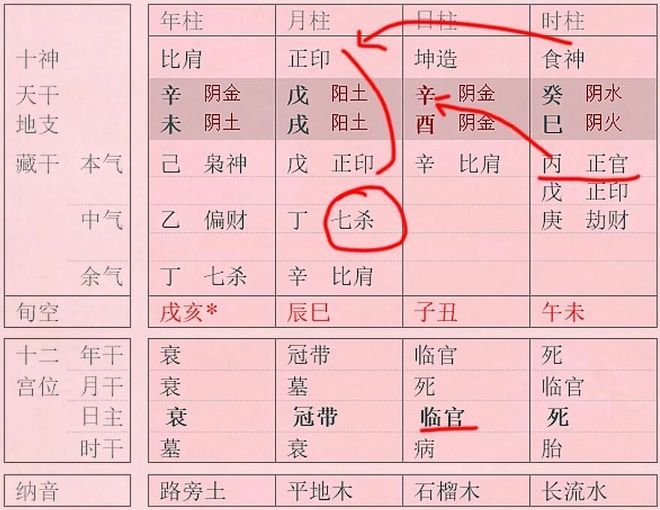 年柱 月柱 日柱 时柱
十神 比肩 正印 坤造 食神
天干 辛 阴金 戊 阳土 辛 阴金 癸 阴水
地支 未 阴土 戌 阳土 酉 阴金 巳 阴火
藏干 本气 己 枭神 戊 正印 辛 比肩 丙 正官
戊 正印
中气 乙 偏财 丁 七杀 庚 劫财
余气 丁 七杀 辛 比肩
旬空 戌亥* 辰巳 子丑 午未
十二 年干 衰 冠带 临官 死
宫位 月干 衰 墓 死 临官
日主 衰 冠带 临官 死
时干 墓 衰 病 胎
纳音 路旁土 平地木 石榴木 长流水